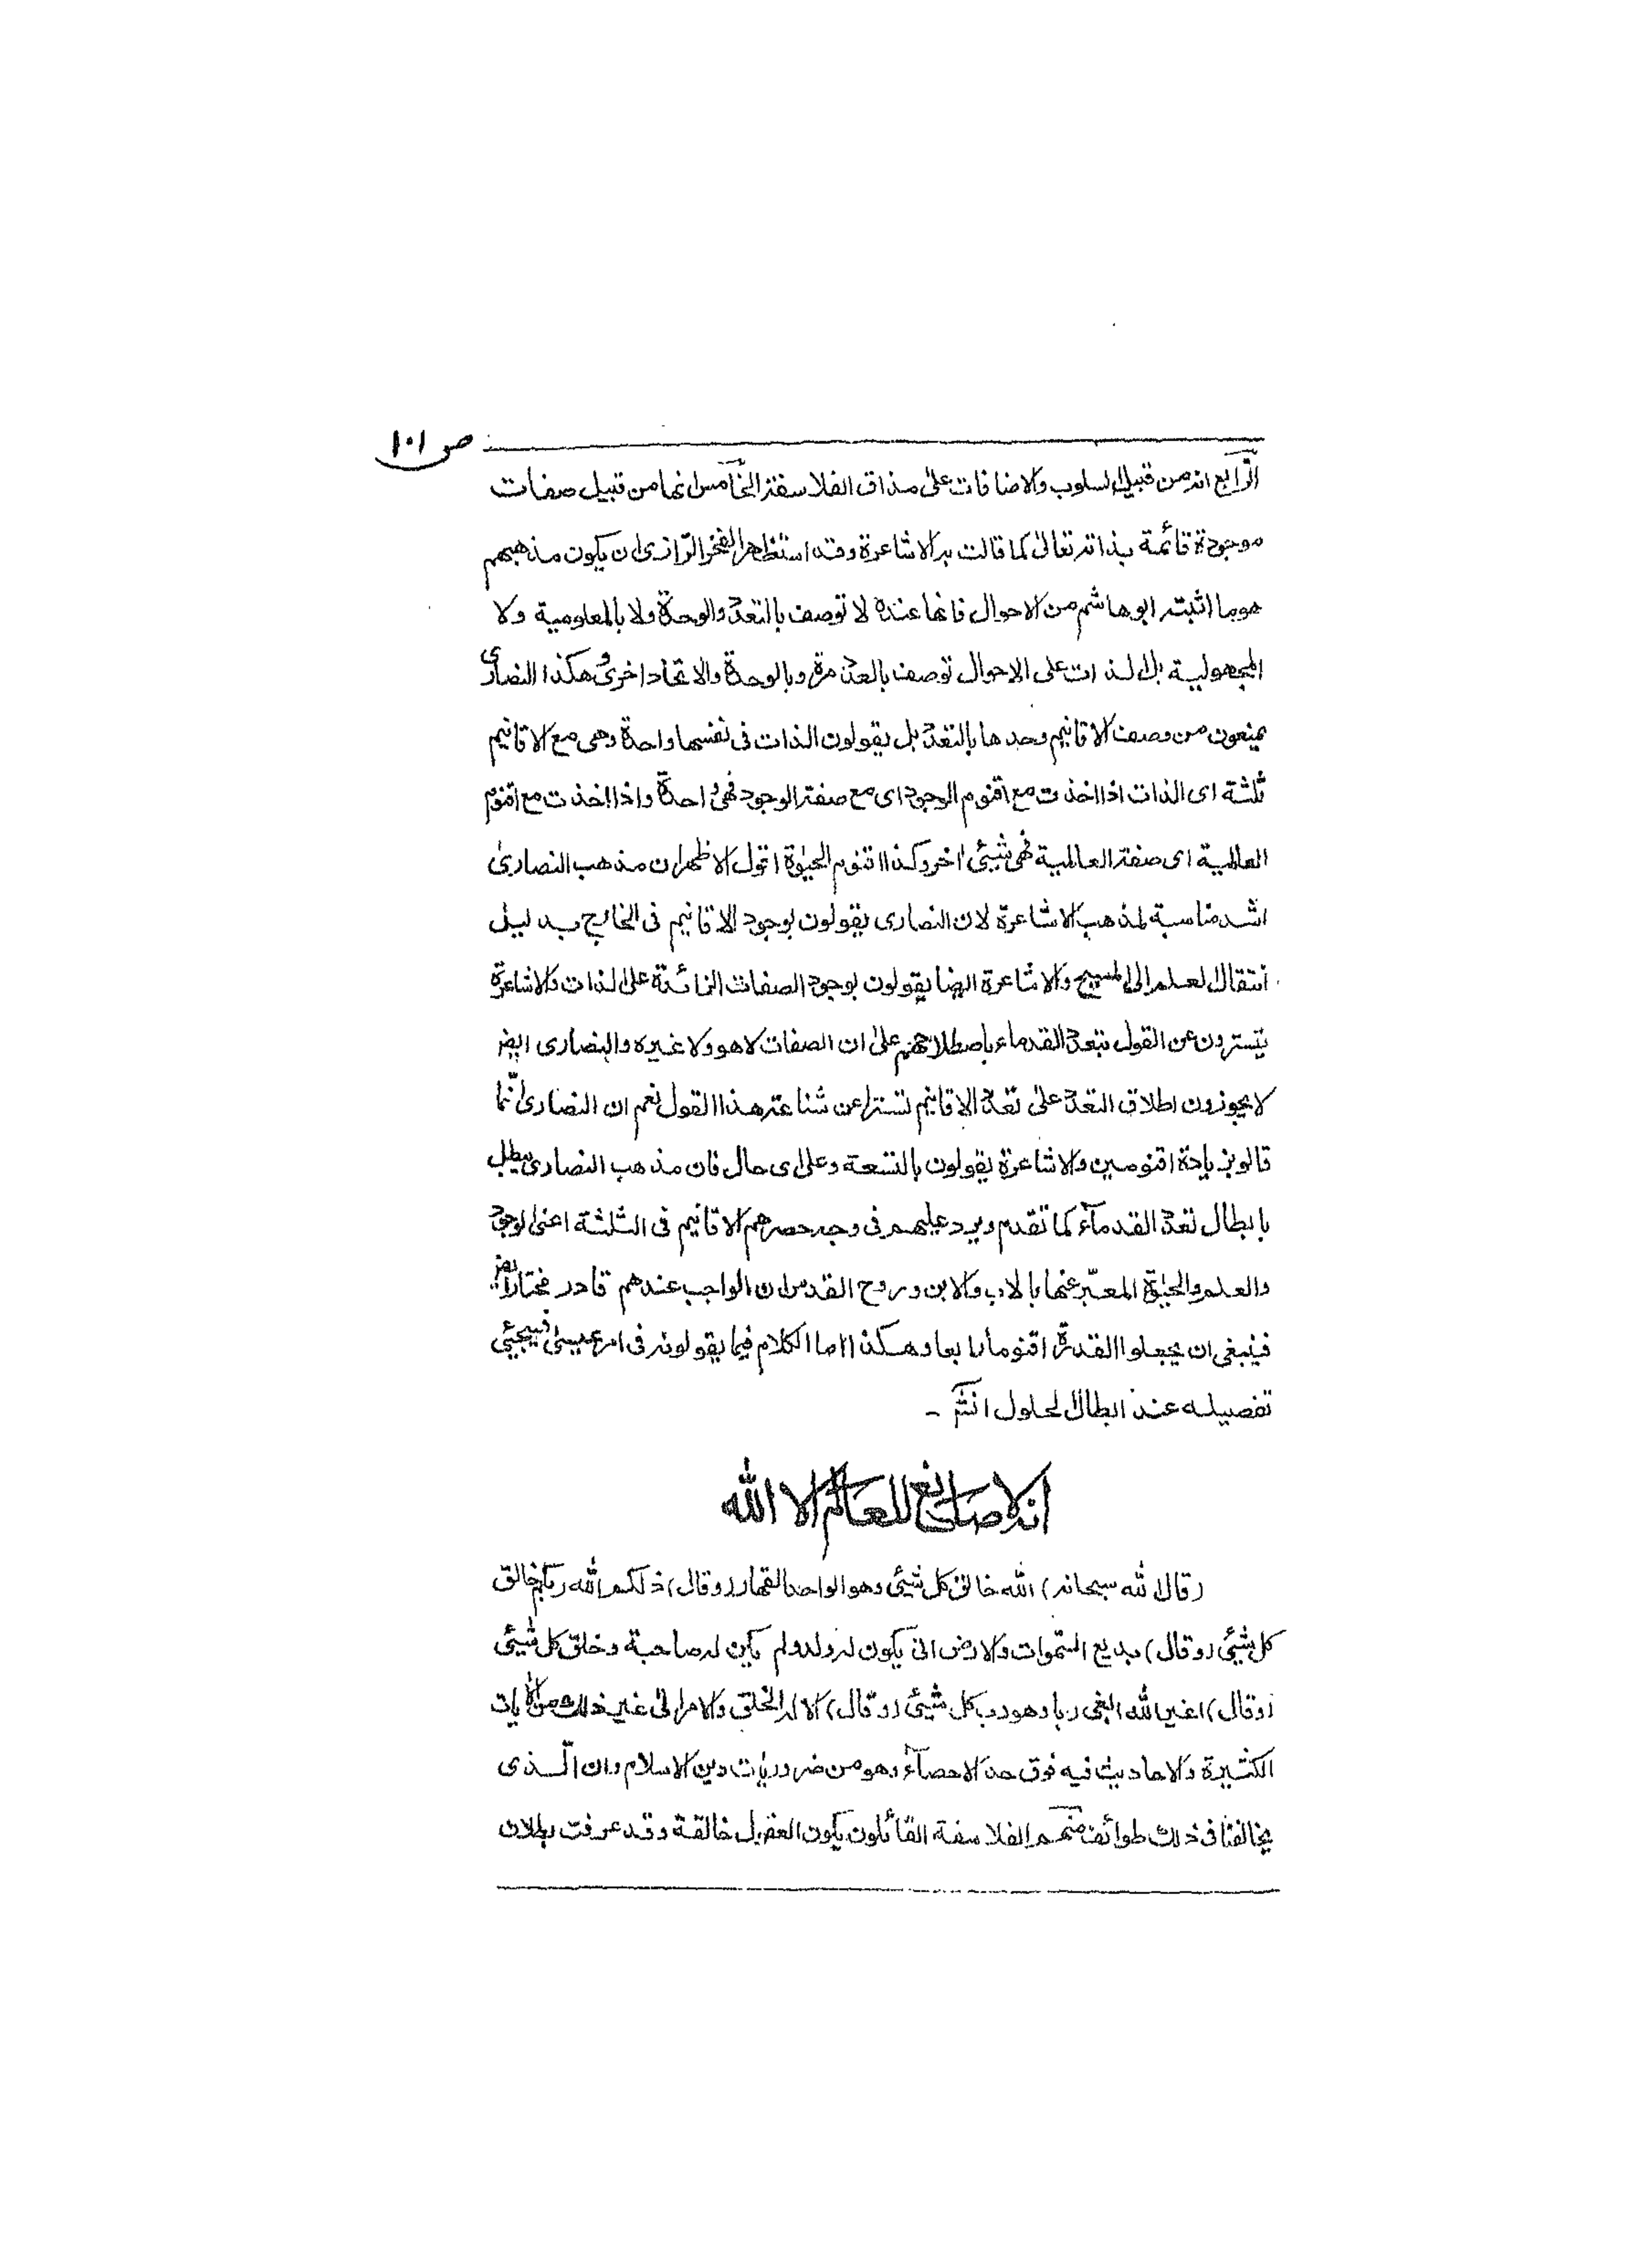 ص ١٠١
الرّابع انه من قبيل السلوب والاضافات على مذاق الفلاسفة الخامس انها من قبيل صفات
موجودة قائمة بذاته تعالى كما قالت به الاشاعرة وقد استظهر الفخر الرّازى ان يكون مذهبهم
هو ما اثبته ابو هاشم من الاحوال فانها عنده لا توصف بالتعدّد والوحدة ولا بالمعلومية ولا
المجهولية بل الذات على الاحوال توصف بالعدد مرة وبالوحدة والاتحاد اخرى وهكذا النصارى
يمنعون من وصف الاقانيم وحدها بالتعدّد بل يقولون الذات فى نفسها واحدة وهى مع الاقانيم
ثلثة اى الذات اذا اخذت مع اقنوم الوجود اى مع صفة الوجود فهى واحدة واذا اخذت مع اقنوم
العالمية اى صفة العالمية فهى شيئ اخر وكذا اقنوم الحيوة اقول الاظهر ان مذهب النصارى
اشد مناسبة لمذهب الاشاعرة لان النصارى يقولون بوجود الاقانيم فى الخارج بدليل
انتقال العلم الى المسيح والاشاعرة ايضا يقولون بوجود الصفات الزائدة على الذات والاشاعرة
يتسترون عن القول بتعدد القدماء باصطلاحهم على ان الصفات لا هو ولا غيره والنصارى ايضا
لا يجوزون اطلاق التعدّد على تعدّد الاقانيم تسترا عن شناعة هذا القول نعم ان النصارى انّما
قالو بزيادة اقنومين والاشاعرة يقولون بالتسعة وعلى اى حال فان مذهب النصارى يبطل
بابطال تعدّد القدمآء كما تقدم ويرد عليهم فى وجه حصرهم الاقانيم فى الثلثة اعنى الوجود
والعلم والحيوة المعبّر عنها بالاب والابن وروح القدس ان الواجب عندهم قادر مختار ايضا
فينبغى ان يجعلوا القدرة اقنوما رابعا وهكذا اما الكلام فيما يقولونه فى امر عيسى فسيجيئ
تفصيله عند ابطال الحلول انشآ -
انه لا صانع للعالم الا الله
(قال الله سبحانه) الله خالق كل شيئ وهو الواحد القهار (وقال) ذلكم الله ربكم خالق
كل شيئ (وقال) بديع السّموات والارض انى يكون له ولد ولم يكن له صاحبة وخلق كل شيئ
(وقال) اغير الله ابغى ربا وهو رب كل شيئ (وقال) الا له الخلق والامر الى غير ذلك من الايات
الكثيرة والاحاديث فيه فوق حد الاحصآء وهو من ضروريات دين الاسلام وان الّذى
يخالفنا فى ذلك طوائف منهم الفلاسفة القائلون بكون العقول خالقة وقد عرفت بطلان